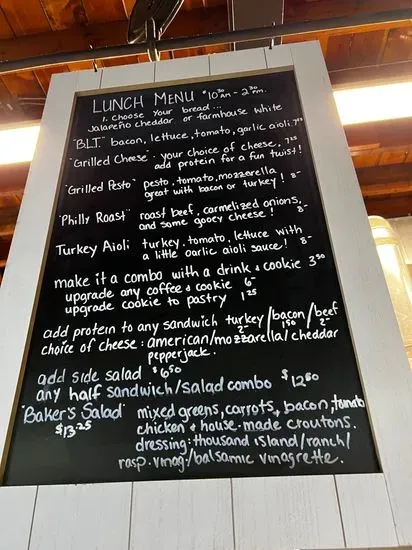 LUNCH MENU 10 30 AM - 2 30 PM.
1. Choose your bread...
jalapeño cheddar or farmhouse white
"BLT" bacon, lettuce, tomato, garlic aioli. 7.25
"Grilled Cheese" · your choice of cheese, 7.25
add protein for a fun twist!
"Grilled Pesto" pesto, tomato, mozzarella
great with bacon or turkey! 8-
"Philly Roast" roast beef, carmelized onions,
and some gooey cheese! 8-
Turkey Aioli turkey, tomato, lettuce with
a little garlic aioli sauce! 8-
make it a combo with a drink & cookie 3 50
upgrade any coffee & cookie 6-
upgrade cookie to pastry 1 25
add protein to any sandwich turkey/bacon/beef
2- 1 50 2-
choice of cheese: american/mozzarella/cheddar
pepperjack.
add side salad $6 50
any half sandwich/salad combo $12 50
"Baker's Salad" mixed greens, carrots, bacon, tomato
$13.25 chicken & house-made croutons.
dressing: thousand island/ranch/
rasp. vinag./balsamic vinagrette.